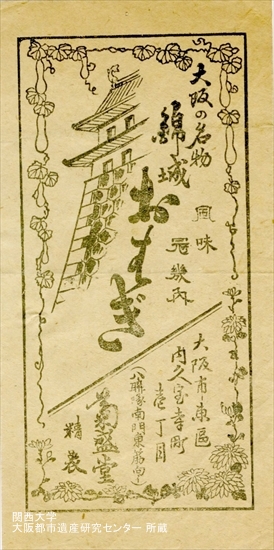 大阪の名物
錦城
おはぎ
風味
冠幾内
大阪市東區
内久宝寺町
壱丁目
(八聯隊南門東筋向)
菊盛堂
精製
関西大学
大阪都市遺産研究センター 所蔵